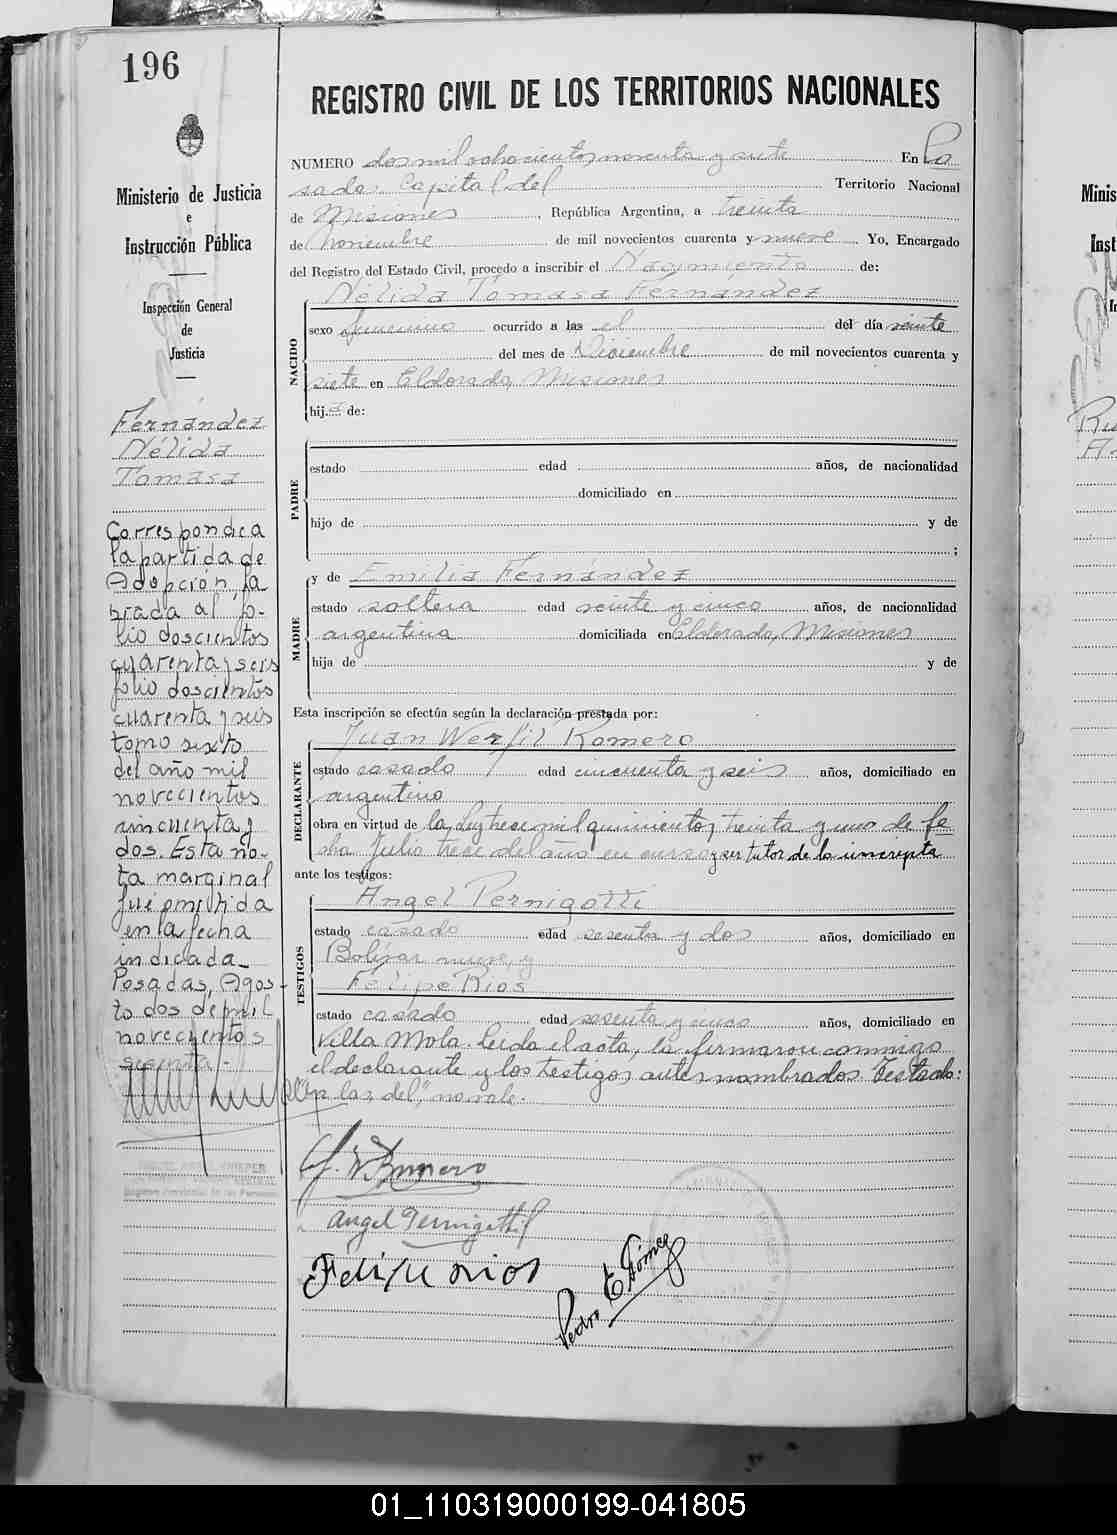 196
REGISTRO CIVIL DE LOS TERRITORIOS NACIONALES
Ministerio de Justicia
e
Instrucción Pública
Inspección General
de
Justicia
Fernández
Nélida
Tomasa
Corresponde a
la partida de
Adopción, la
brada al fo-
lio doscientos
cuarenta y seis
folio doscientos
cuarenta y seis
tomo sexto
del año mil
novecientos
cincuenta y
dos. Esta no-
ta marginal
fué omitida
en la fecha
indicada_
Posadas, Agos-
to dos de mil
novecientos
sesenta.-
NUMERO dos mil ochocientos noventa y siete En Po
sadas Capital del Territorio Nacional
de Misiones, República Argentina, a treinta
de noviembre de mil novecientos cuarenta y nueve. Yo, Encargado
del Registro del Estado Civil, procedo a inscribir el Nacimiento de:
NACIDO
Nélida Tomasa Fernández
sexo femenino ocurrido a las el del día veinte
del mes de Diciembre de mil novecientos cuarenta y
siete en Eldorado, Misiones
hija de:
PADRE
estado edad años, de nacionalidad
domiciliado en
hijo de y de
;
y de Emilia Fernández
MADRE
estado soltera edad veinte y cinco años, de nacionalidad
argentina domiciliada en Eldorado, Misiones
hija de y de
Esta inscripción se efectúa según la declaración prestada por:
DECLARANTE
Juan Werfil Romero
estado casado edad cincuenta y seis años, domiciliado en
argentino
obra en virtud de la Ley trece mil quinientos treinta y uno de fe
cha Julio trece del año en curso y ser tutor de la inscripta
ante los testigos:
TESTIGOS
Angel Pernigotti
estado casado edad sesenta y dos años, domiciliado en
Bolívar nueve, y
Felipe Rios
estado casado edad sesenta y cinco años, domiciliado en
Villa Mola. Leída el acta, la firmaron conmigo
el declarante y los testigos antes nombrados. Testado:
"a las del", no vale.
J. W. Romero
Angel Pernigotti
Felipe Rios
Pedro E Gómez
Minis
Inst
01_110319000199-041805